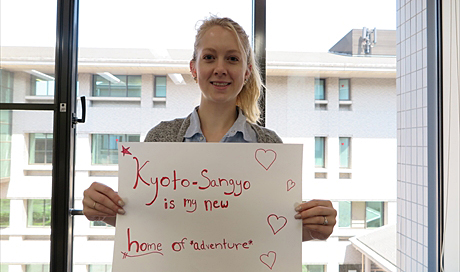 Kyoto-Sangyo
is my new
home of *adventure*